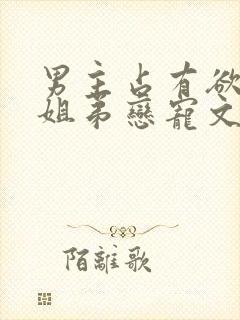 男主占有欲
姐弟戀寵文
陌離歌